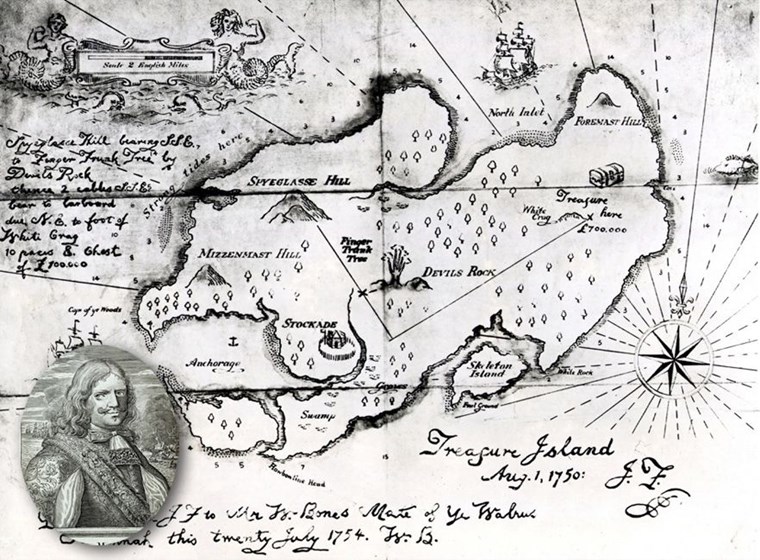 Scale 2 English Miles
North Inlet
FOREMAST HILL
Spyeglasse Hill bearing S.S.E.,
to Finger Trunk Tree by
Devils Rock
thence 2 cables S.S.E.
bear to larboard
due N.E. to foot of
White Crag
10 paces E. Chest
of £700.000
Strong tides here
SPYEGLASSE HILL
Treasure
here
White
Crag
£700.000
Finger
Trunk
Tree
MIZZENMAST HILL
DEVILS ROCK
Cape of ye Woods
STOCKADE
Anchorage
Skeleton
Island
White Rock
Foul Ground
Swamp
Treasure Island
Aug. 1, 1750:
J. F.
J F to Mr W. Bones Mate of Ye Walrus
this twenty July 1754. W. B.